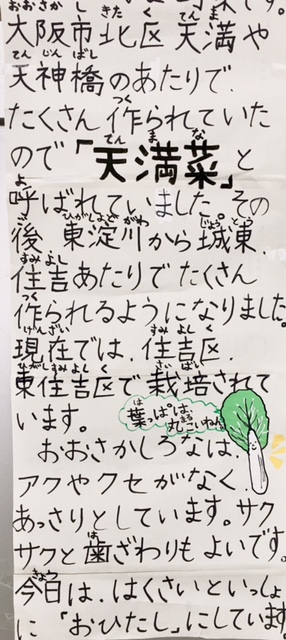 です。
大阪市北区天満や
天神橋のあたりで、
たくさん作られていた
ので「天満菜」と
呼ばれていました。その
後、東淀川から城東、
住吉あたりでたくさん
作られるようになりました。
現在では、住吉区、
東住吉区で栽培されて
います。
葉っぱは、
まるこいねん
おおさかしろなは、
アクやクセがなく
あっさりとしています。サク
サクと歯ざわりもよいです。
今日は、はくさいといっしょ
に「おひたし」にしています